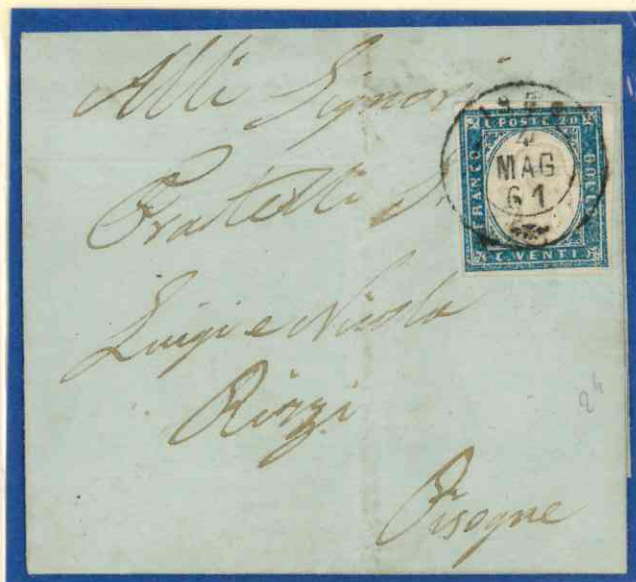 Alli Signori
Fratelli
Luigi e Nicola
Rizzi
Pisogne
ISEO
4
MAG
61
C. POSTE 20
FRANCO
BOLLO
C. VENTI
24